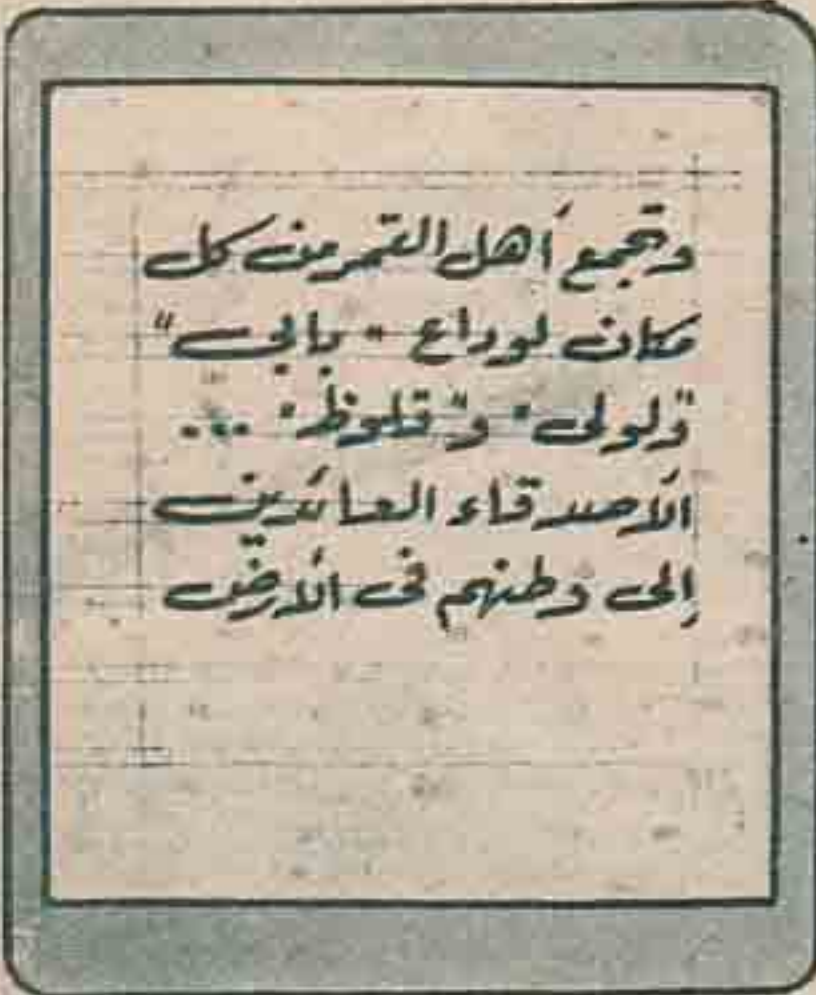 وتجمع أهل القمر من كل
مكان لوداع "بالى"
و"لولى" و"قلوظ" ...
الأصدقاء العائدين
إلى وطنهم فى الأرض